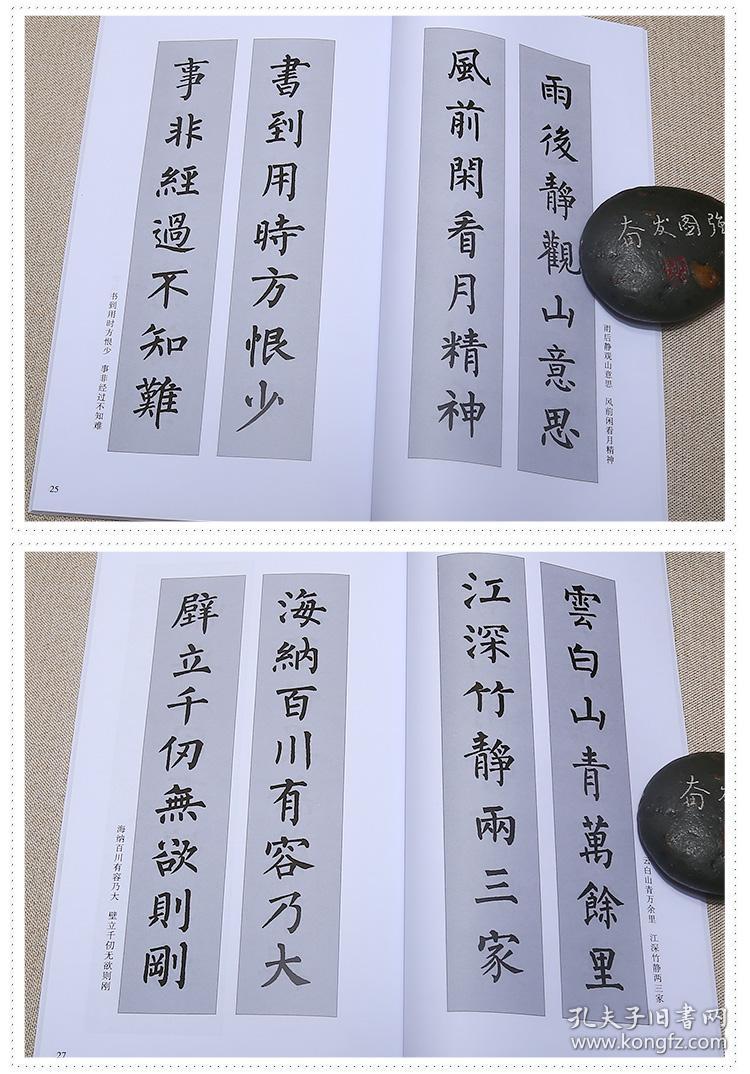 雨後靜觀山意思
風前閑看月精神
雨后静观山意思 风前闲看月精神
奋发图强
書到用時方恨少
事非經過不知難
书到用时方恨少 事非经过不知难
25
雲白山青萬餘里
江深竹靜兩三家
云白山青万余里 江深竹静两三家
奋
海納百川有容乃大
壁立千仞無欲則剛
海纳百川有容乃大 壁立千仞无欲则刚
27
孔夫子旧书网
www.kongfz.com